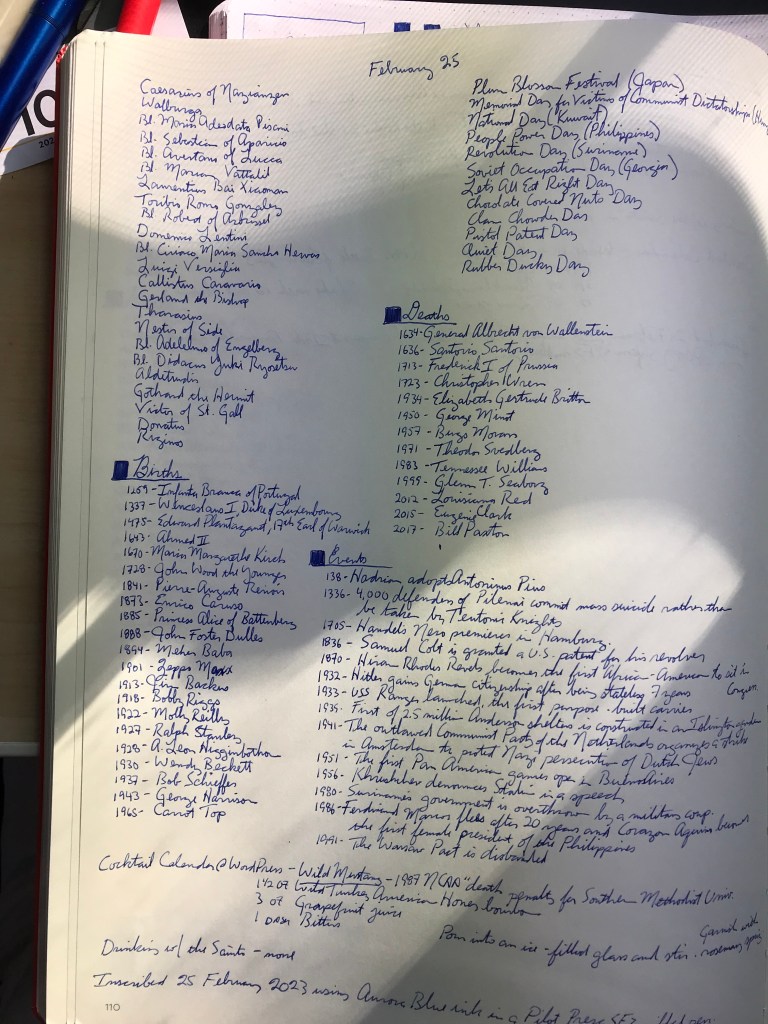 February 25
Caesarius of Nazianzen
Walburga
Bl. Maria Adeodata Pisani
Bl. Sebastian of Aparicio
Bl. Avertano of Lucca
Bl. Marian Vattalil
Laurentius Bai Xiaoman
Toribio Romo Gonzalez
Bl. Robert of Arbrissel
Domenico Lentini
Bl. Ciriaco Maria Sancha Hervas
Luigi Versiglia
Callistus Caravario
Gerland the Bishop
Tharasius
Nestor of Side
Bl. Adelelmo of Engelberg
Bl. Didacus Yuki Ryosetsu
Aldetrudis
Gothard the Hermit
Victor of St. Gall
Donatus
Riginos
Plum Blossom Festival (Japan)
Memorial Day for Victims of Communist Dictatorships
National Day (Kuwait)
People Power Day (Philippines)
Revolution Day (Suriname)
Soviet Occupation Day (Georgia)
Lets All Eat Right Day
Chocolate Covered Nuts Day
Clam Chowder Day
Pistol Patent Day
Quiet Day
Rubber Ducky Day
Deaths
1634 - General Albrecht von Wallenstein
1636 - Santorio Santorio
1713 - Frederick I of Prussia
1723 - Christopher Wren
1934 - Elizabeth Gertrude Britton
1950 - George Minot
1957 - Bugs Moran
1971 - Theodor Svedberg
1983 - Tennessee Williams
1999 - Glenn T. Seaborg
2012 - Louisiana Red
2015 - Eugenie Clark
2017 - Bill Paxton
Births
1259 - Infanta Branca of Portugal
1337 - Wenceslaus I, Duke of Luxembourg
1475 - Edward Plantagenet, 17th Earl of Warwick
1643 - Ahmed II
1670 - Maria Margarethe Kirch
1728 - John Wood the Younger
1841 - Pierre-Auguste Renoir
1873 - Enrico Caruso
1885 - Princess Alice of Battenberg
1888 - John Foster Dulles
1894 - Meher Baba
1901 - Zeppo Marx
1913 - Jim Backus
1918 - Bobby Riggs
1922 - Molly Reilly
1927 - Ralph Stanley
1928 - A. Leon Higginbotham
1930 - Wendy Beckett
1937 - Bob Schieffer
1943 - George Harrison
1965 - Carrot Top
Events
138 - Hadrian adopts Antoninus Pius
1336 - 4,000 defenders of Pilenai commit mass suicide rather than
be taken by Teutonic Knights
1705 - Handel's Nero premieres in Hamburg.
1836 - Samuel Colt is granted a U.S. patent for his revolver
1870 - Hiram Rhodes Revels becomes the first African-American to sit in
Congress
1932 - Hitler gains German citizenship after being stateless 7 years
1933 - USS Ranger launched, the first purpose-built carrier
1939 - First of 2.5 million Anderson shelters is constructed in an Islington garden
1941 - The outlawed Communist Party of the Netherlands organizes a strike
in Amsterdam to protest Nazi persecution of Dutch Jews
1951 - The first Pan American games open in Buenos Aires
1956 - Khrushchev denounces Stalin in a speech
1980 - Suriname's government is overthrown by a military coup.
1986 - Ferdinand Marcos flees after 20 years and Corazon Aquino becomes
the first female president of the Philippines
1991 - The Warsaw Pact is disbanded
Cocktail Calendar@WordPress - Wild Mustang - 1987 NCAA "death penalty for Southern Methodist Univ.
1 1/2 oz Wild Turkey American Honey bourbon
3 oz Grapefruit juice
1 DASH Bitters
Pour into an ice-filled glass and stir. Garnish with rosemary sprig
Drinking w/ the Saints - none
Inscribed 25 February 2023 using Aurora Blue ink in a Pilot Prera
110